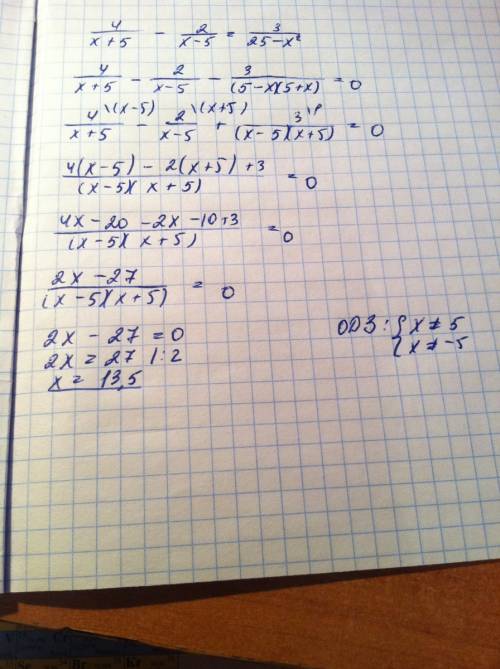 4/(x+5) - 2/(x-5) = 3/(25-x²)
4/(x+5) - 2/(x-5) - 3/((5-x)(5+x)) = 0
4\(x-5)/(x+5) - 2\(x+5)/(x-5) + 3\1/((x-5)(x+5)) = 0
(4(x-5) - 2(x+5) + 3)/((x-5)(x+5)) = 0
(4x-20-2x-10+3)/((x-5)(x+5)) = 0
(2x-27)/((x-5)(x+5)) = 0
2x - 27 = 0
ОДЗ: { x ≠ 5
2x = 27 |:2
{ x ≠ -5
x = 13,5